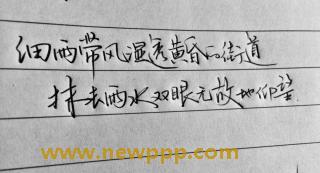 细雨带风湿透黄昏的街道
抹去雨水双眼无故地仰望
www.newppp.com